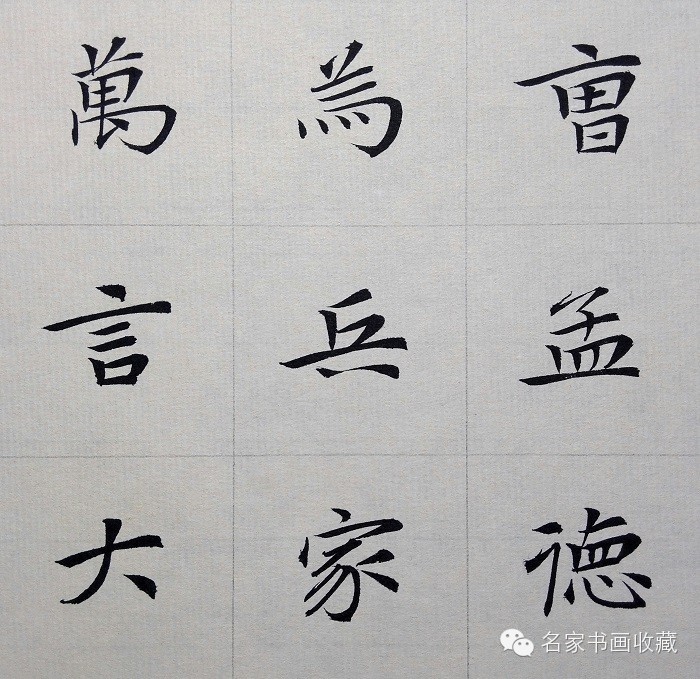 曹孟德
為兵家
萬言大
名家书画收藏